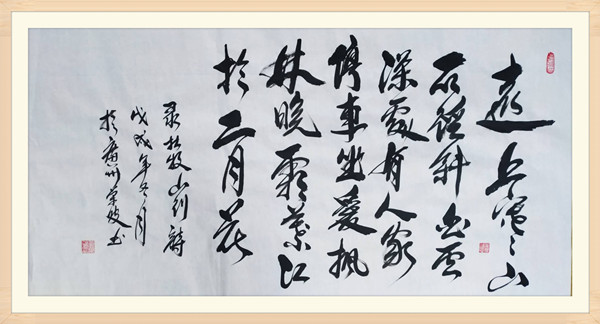 遠上寒山
石徑斜白雲
深處有人家
停車坐愛楓
林晚霜葉紅
於二月花
录杜牧山行詩
戊戌年冬月
於州书